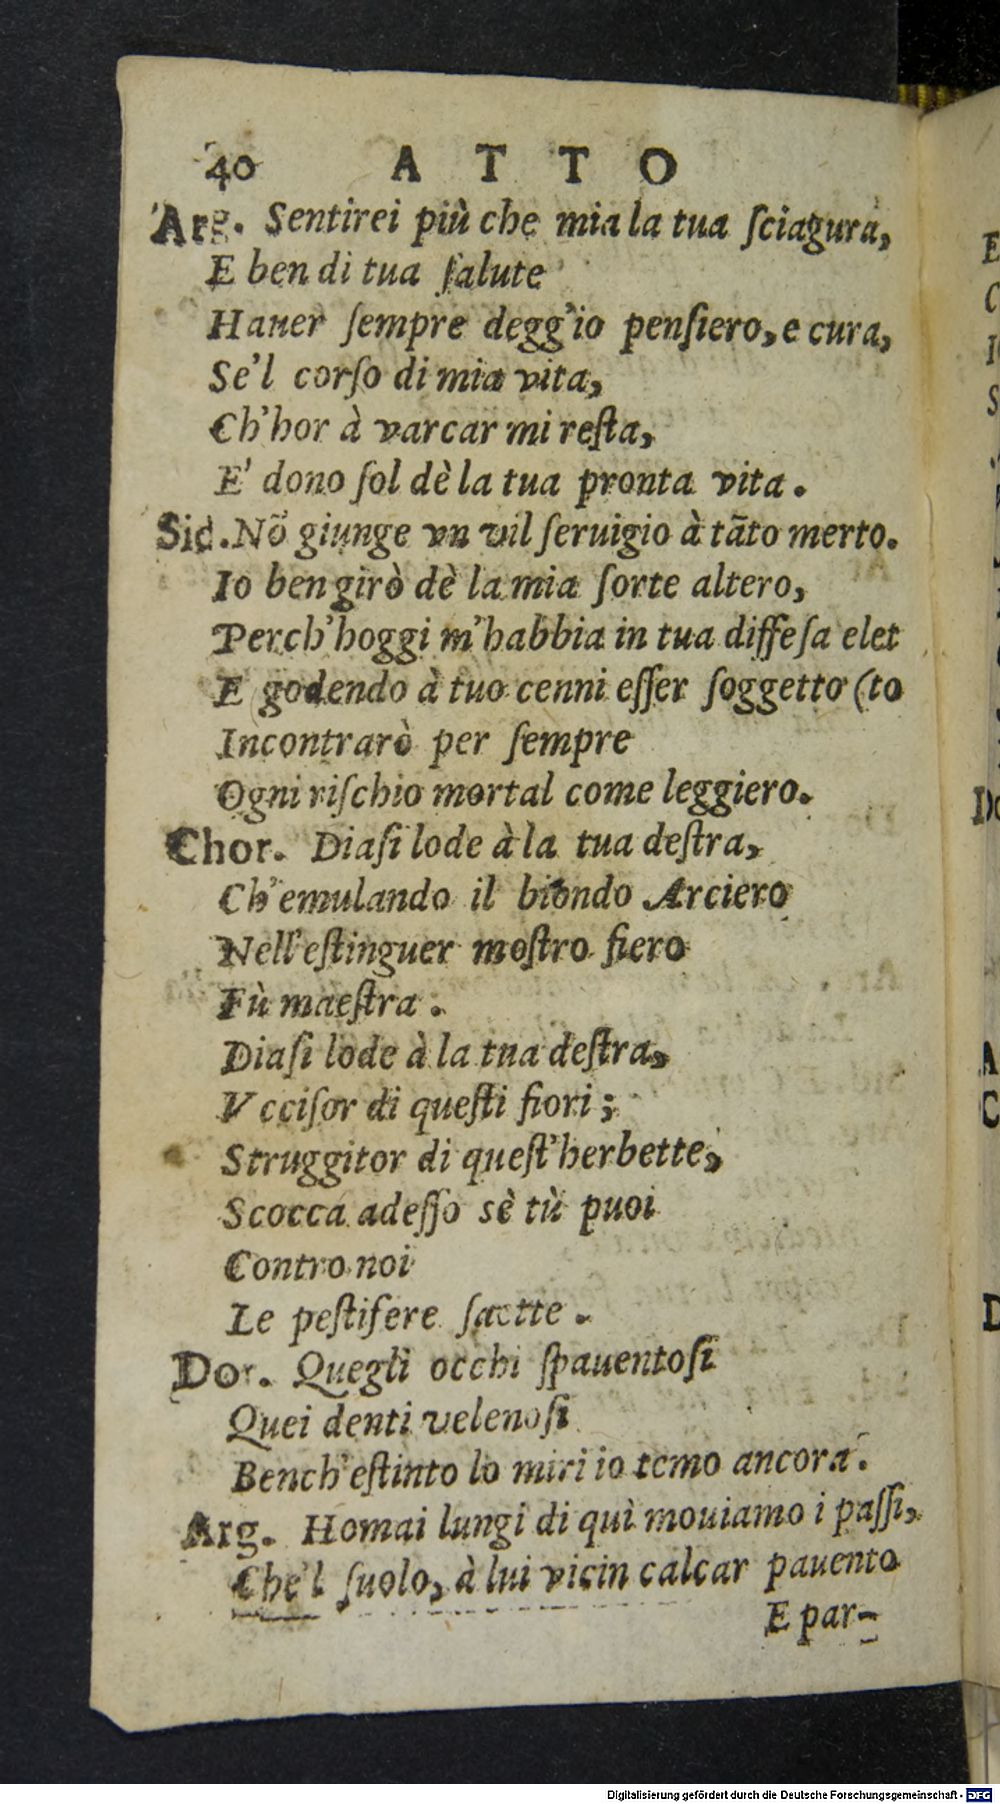 40 ATTO
Arg. Sentirei più che mia la tua ſciagura,
E ben di tua ſalute
Hauer ſempre degg'io penſiero, e cura,
Se'l corſo di mia vita,
Ch'hor à varcar mi reſta,
E' dono ſol dè la tua pronta vita.
Sid. Nõ giunge vn vil ſeruigio à tãto merto.
Io ben girò dè la mia ſorte altero,
Perch'hoggi m'habbia in tua diffeſa elet
E godendo à tuo cenni eſſer ſoggetto (to
Incontrarò per ſempre
Ogni riſchio mortal come leggiero.
Chor. Diaſi lode à la tua deſtra,
Ch'emulando il biondo Arciero
Nell'eſtinguer moſtro fiero
Fù maeſtra.
Diaſi lode à la tua deſtra,
Vcciſor di queſti fiori;
Struggitor di queſt'herbette,
Scocca adeſſo sè tù puoi
Contro noi
Le peſtifere ſaette.
Dor. Quegli occhi ſpauentoſi
Quei denti velenoſi
Bench'eſtinto lo miri io temo ancora.
Arg. Homai lungi di quì mouiamo i paſſi,
Che'l ſuolo, à lui vicin calcar pauento
E par-
E
C
I
S
Do
A
C
D
Digitalisierung gefördert durch die Deutsche Forschungsgemeinschaft - DFG